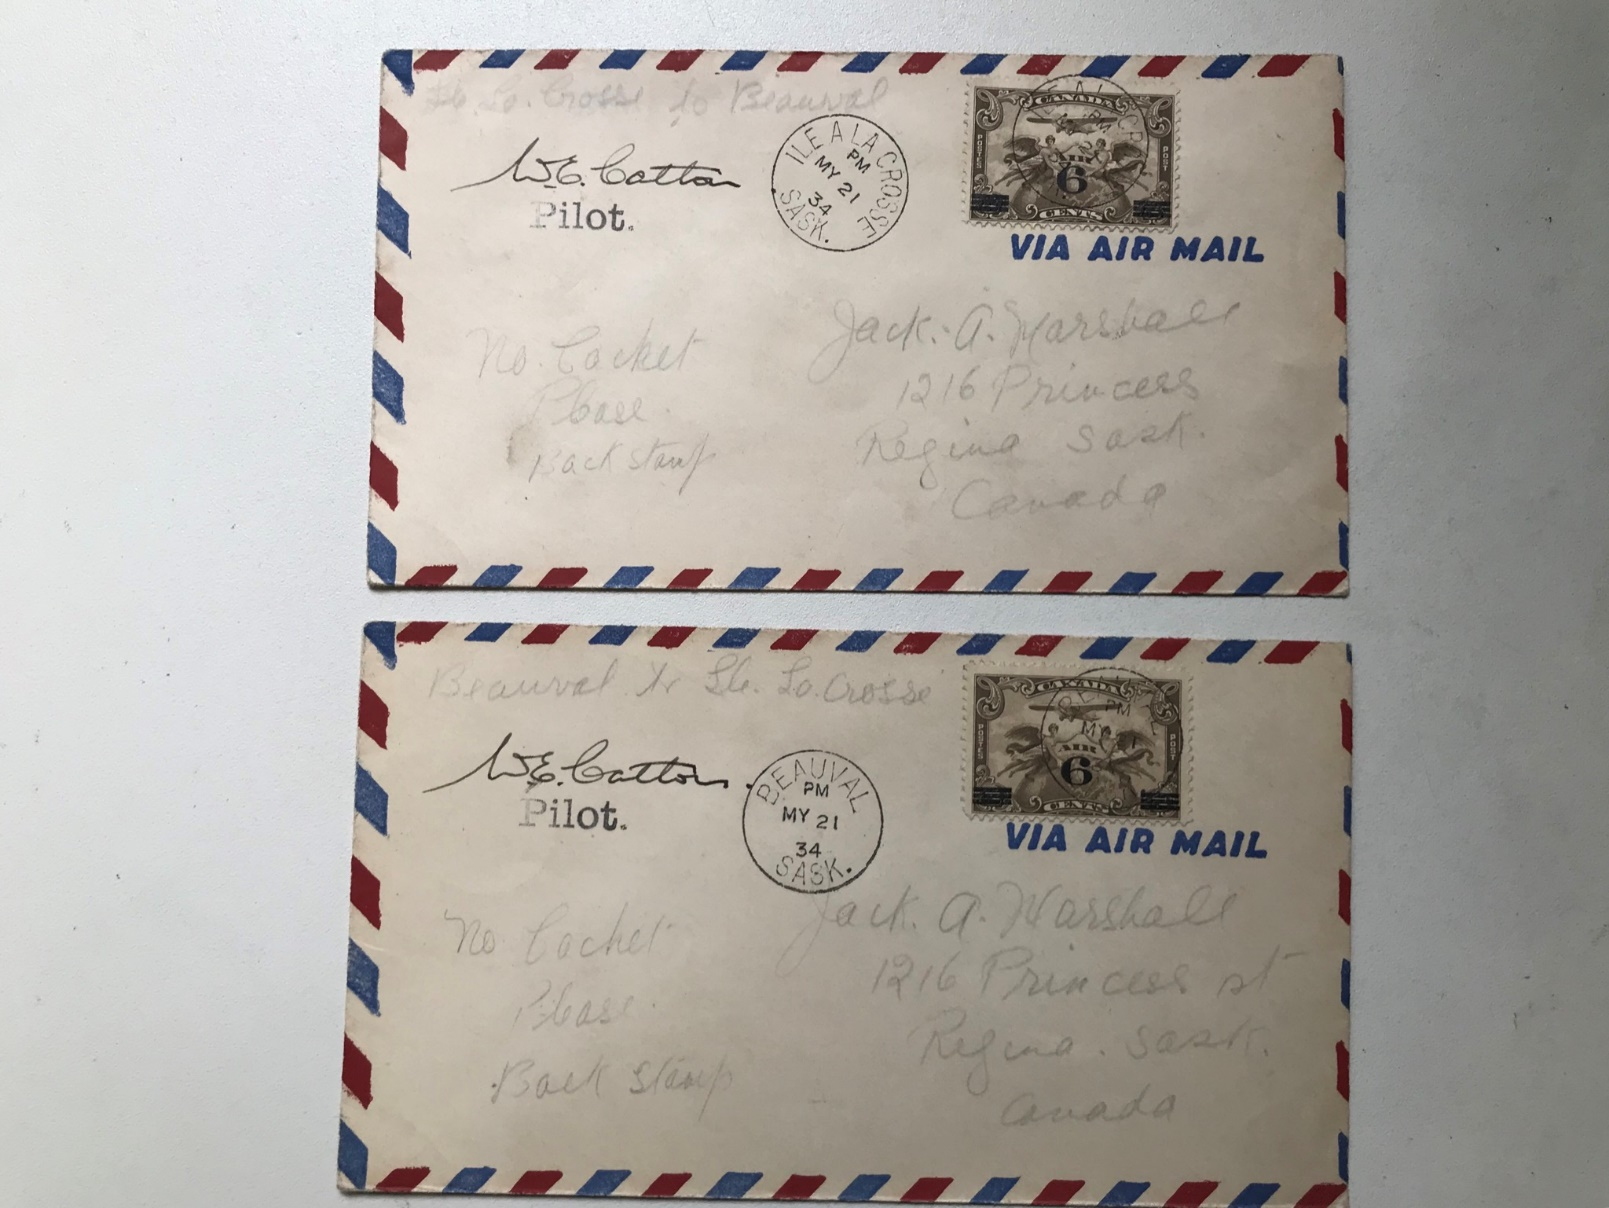 Ile. La. Crosse to Beauval
W.E. Catton
Pilot.
ILE A LA CROSSE
PM
MY 21
34
SASK.
CANADA
POSTES
POST
AIR
6
CENTS
VIA AIR MAIL
No. Cachet
Please.
Back stamp
Jack. A. Marshall
1216 Princess
Regina Sask.
Canada
Beauval to Ile. La. Crosse
W.E. Catton.
Pilot.
BEAUVAL
PM
MY 21
34
SASK.
CANADA
POSTES
POST
AIR
6
CENTS
VIA AIR MAIL
No Cachet
Please.
Back Stamp
Jack. A. Marshall
1216 Princess st
Regina. Sask.
Canada